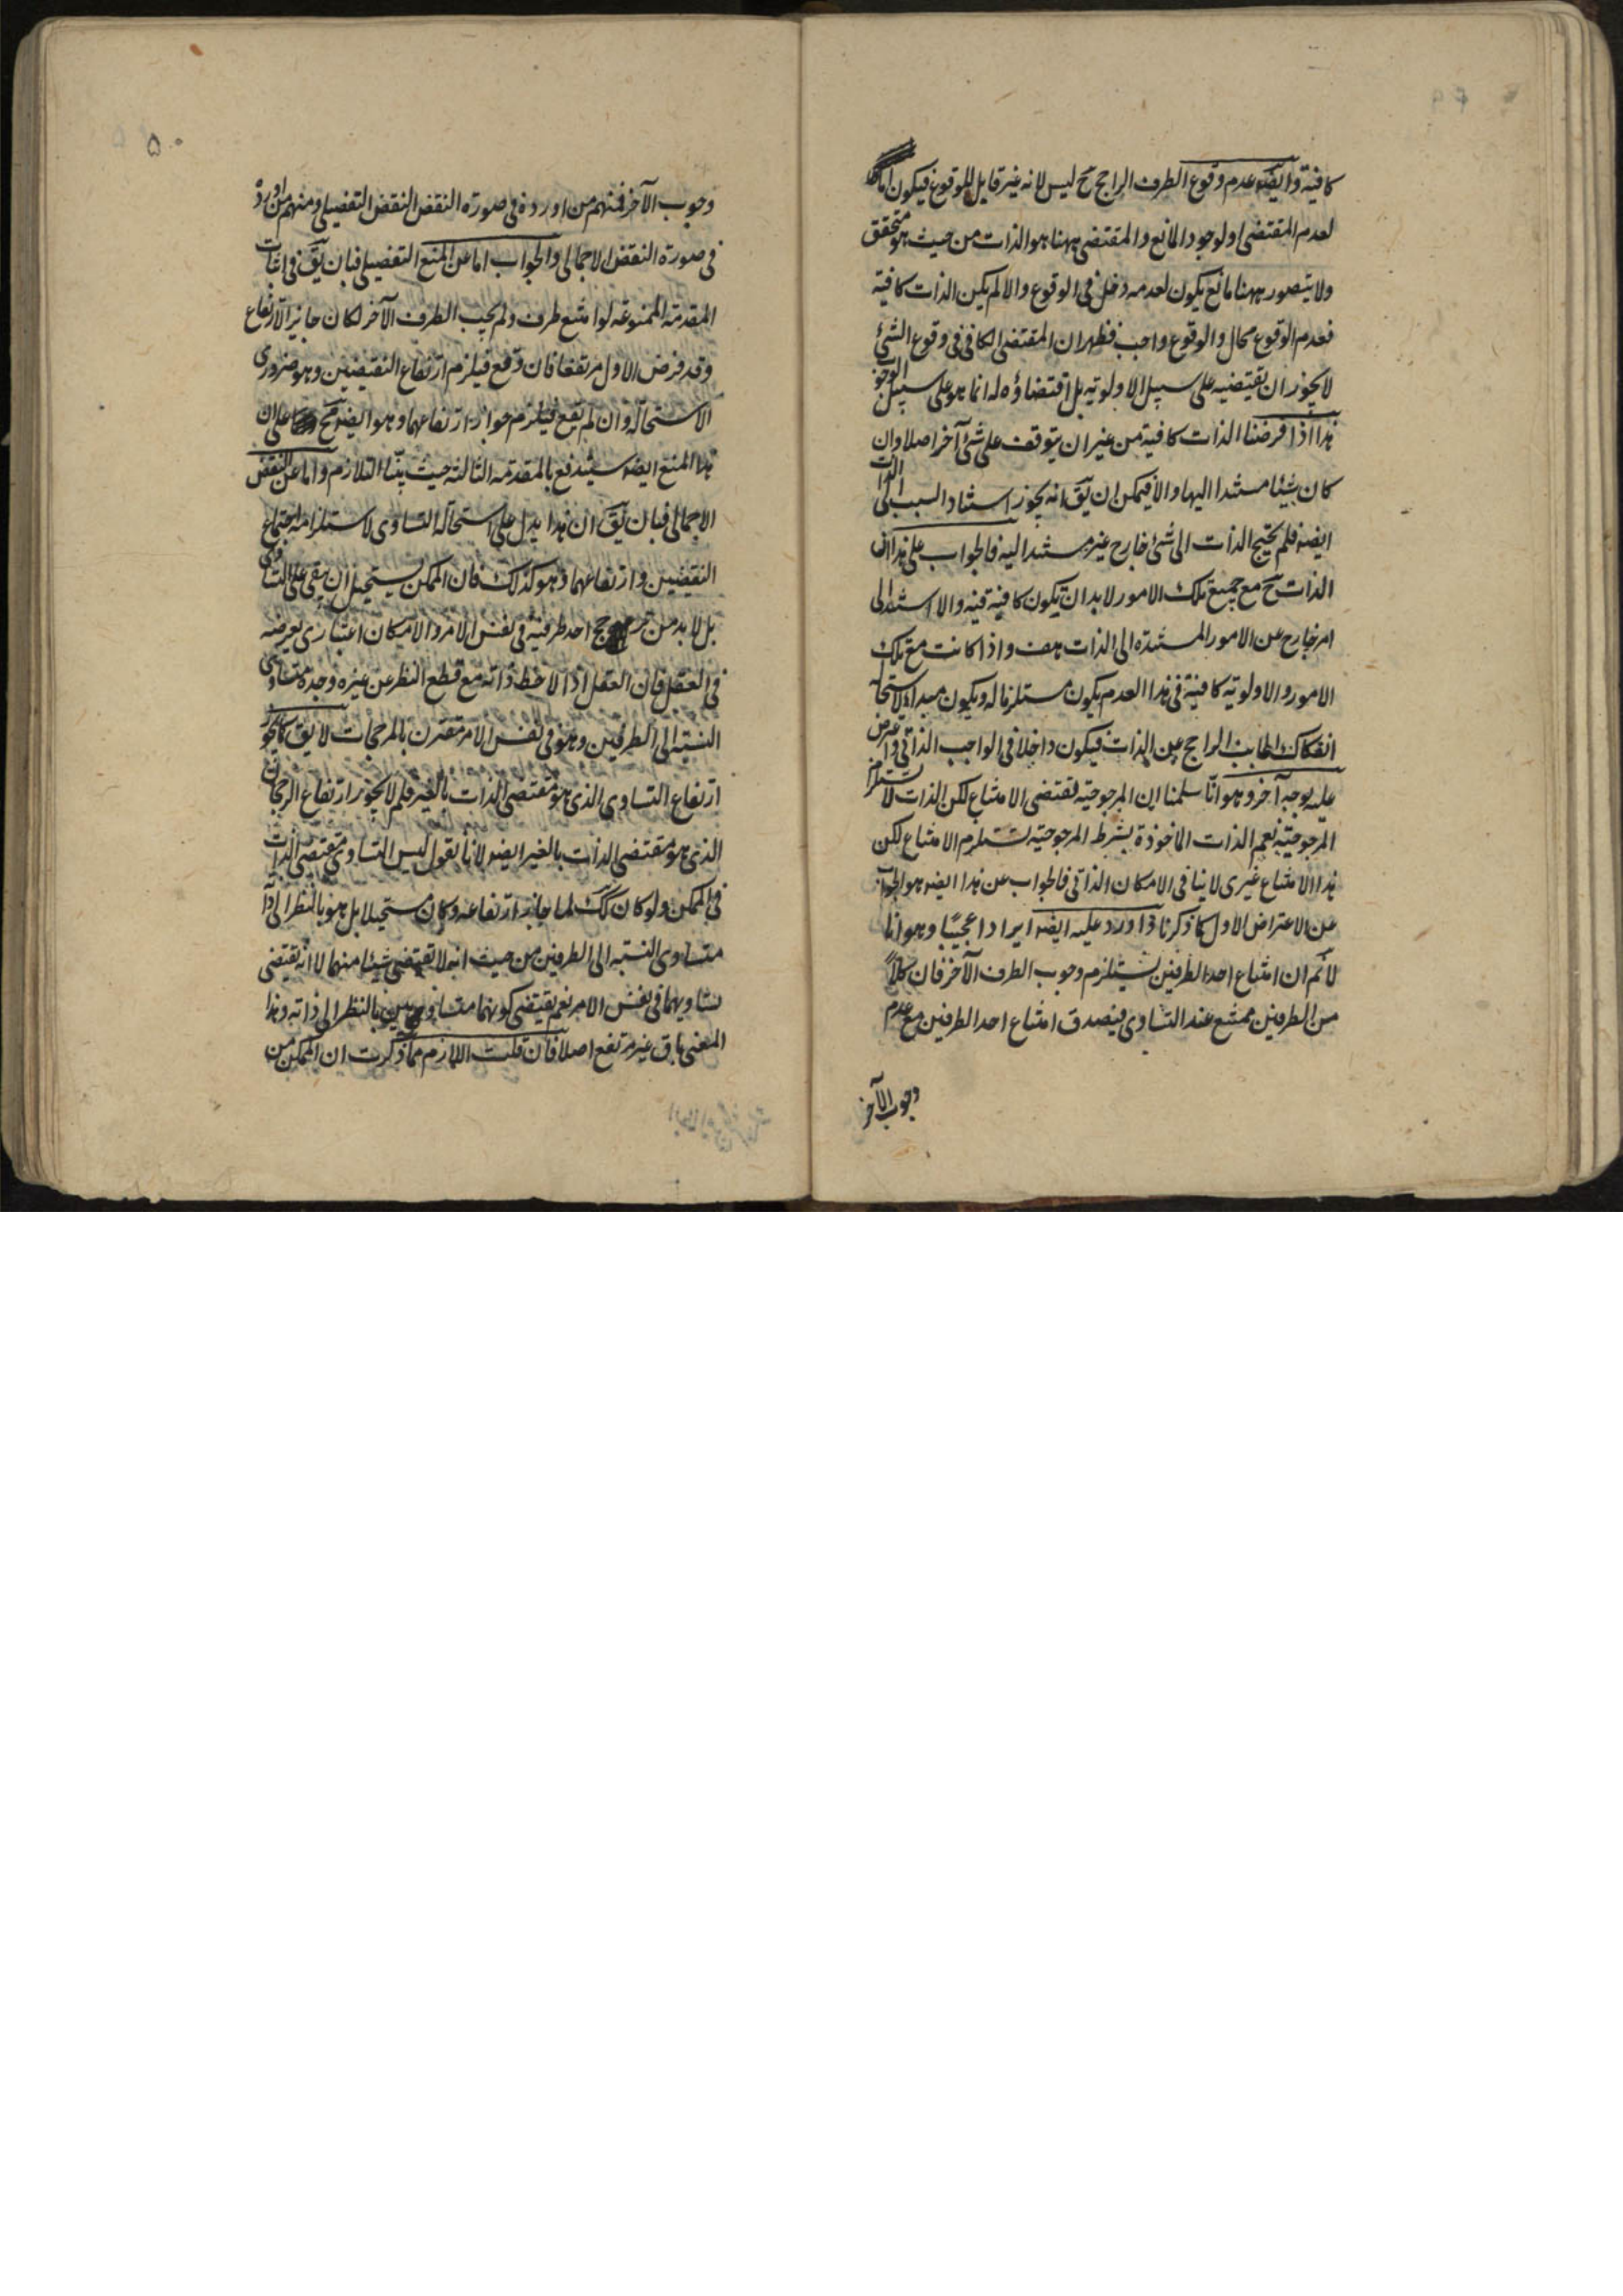 كافية وايضه عدم وقوع الطرف الراجح ح ليس لانه غير قابل للوقوع فيكون اما
لعدم المقتضى او لوجود المانع والمقتضى ههنا هو الذات من حيث هو متحقق
ولا يتصور ههنا مانع يكون لعدمه دخل فى الوقوع والا لم يكن الذات كافية
فعدم الوقوع محال والوقوع واجب فظهر ان المقتضى الكافى فى وقوع الشئ
لا يجوز ان يقتضيه على سبيل الاولوية بل اقتضاؤه له انما هو على سبيل الوجوب
هذا اذا فرضنا الذات كافية من غير ان يتوقف على شئ آخر اصلا وان
كان شيئا مستندا اليها والا فيمكن ان يق انه يجوز استناد السبب الى الذات
ايضه فلم يحتج الذات الى شئ خارج غير مستند اليه فالجواب على هذا ان
الذات ح مع جميع تلك الامور لا بد ان يكون كافية فيه والا استند الى
امر خارج عن الامور المستندة الى الذات هف واذا كانت مع تلك
الامور والاولوية كافية فى هذا العدم يكون مستلزما له ويكون مبدا لاستحالة
انفكاك الجانب الراجح عن الذات فيكون داخلا فى الواجب الذاتى واعترض
عليه بوجه آخر وهو انا سلمنا ان المرجوحية تقتضى الامتناع لكن الذات لا تستلزم
المرجوحية نعم الذات الماخوذة بشرط المرجوحية تستلزم الامتناع لكن
هذا الامتناع غيرى لا ينافى الامكان الذاتى فالجواب عن هذا ايضه هو الجواب
عن الاعتراض الاول كما ذكرنا واورد عليه ايضه ايرادا عجيبا وهو انا
لا نم ان امتناع احد الطرفين يستلزم وجوب الطرف الآخر فان كلا
من الطرفين ممتنع عند التساوى فيصدق امتناع احد الطرفين مع عدم
وجوب الآخر
٥٠
وجوب الآخر فمنهم من اورده فى صورة النقض النقض التفصيلى ومنهم من اورده
فى صورة النقض الاجمالى والجواب اما عن المنع التفصيلى فبان يق فى اثبات
المقدمة الممنوعة لو امتنع طرف ولم يجب الطرف الآخر لكان جايز الارتفاع
وقد فرض الاول مرتفعا فان وقع فيلزم ارتفاع النقيضين وهو ضرورى
الاستحالة وان لم يقع فيلزم جواز ارتفاعهما وهو ايضه مح على ان
هذا المنع ايضه سيندفع بالمقدمة الثالثة حيث بينا التلازم واما عن النقض
الاجمالى فبان يق ان هذا يدل على استحالة التساوى لاستلزامه اجتماع
النقيضين وارتفاعهما وهو كذلك فان الممكن يستحيل ان يبقى على التساوى
بل لا بد من ترجح احد طرفيه فى نفس الامر والامكان اعتبارى يعرضه
فى العقل فان العقل اذا لاحظ ذاته مع قطع النظر عن غيره وجده متساوى
النسبة الى الطرفين وهو فى نفس الامر مقترن بالمرجحات لا يق كما يجوز
ارتفاع التساوى الذى هو مقتضى الذات بالغير فلم لا يجوز ارتفاع الرجحان
الذى هو مقتضى الذات بالغير ايضه لانا نقول ليس التساوى مقتضى الذات
فى الممكن ولو كان كك لما جاز ارتفاعه وكان مستحيلا بل هو بالنظر الى ذاته
متساوى النسبة الى الطرفين من حيث انه لا يقتضى شيئا منهما لا انه يقتضى
تساويهما فى نفس الامر نعم يقتضى كونهما متساويين بالنظر الى ذاته وهذا
المعنى باق غير مرتفع اصلا فان قلت اللازم مما ذكرت ان الممكن من